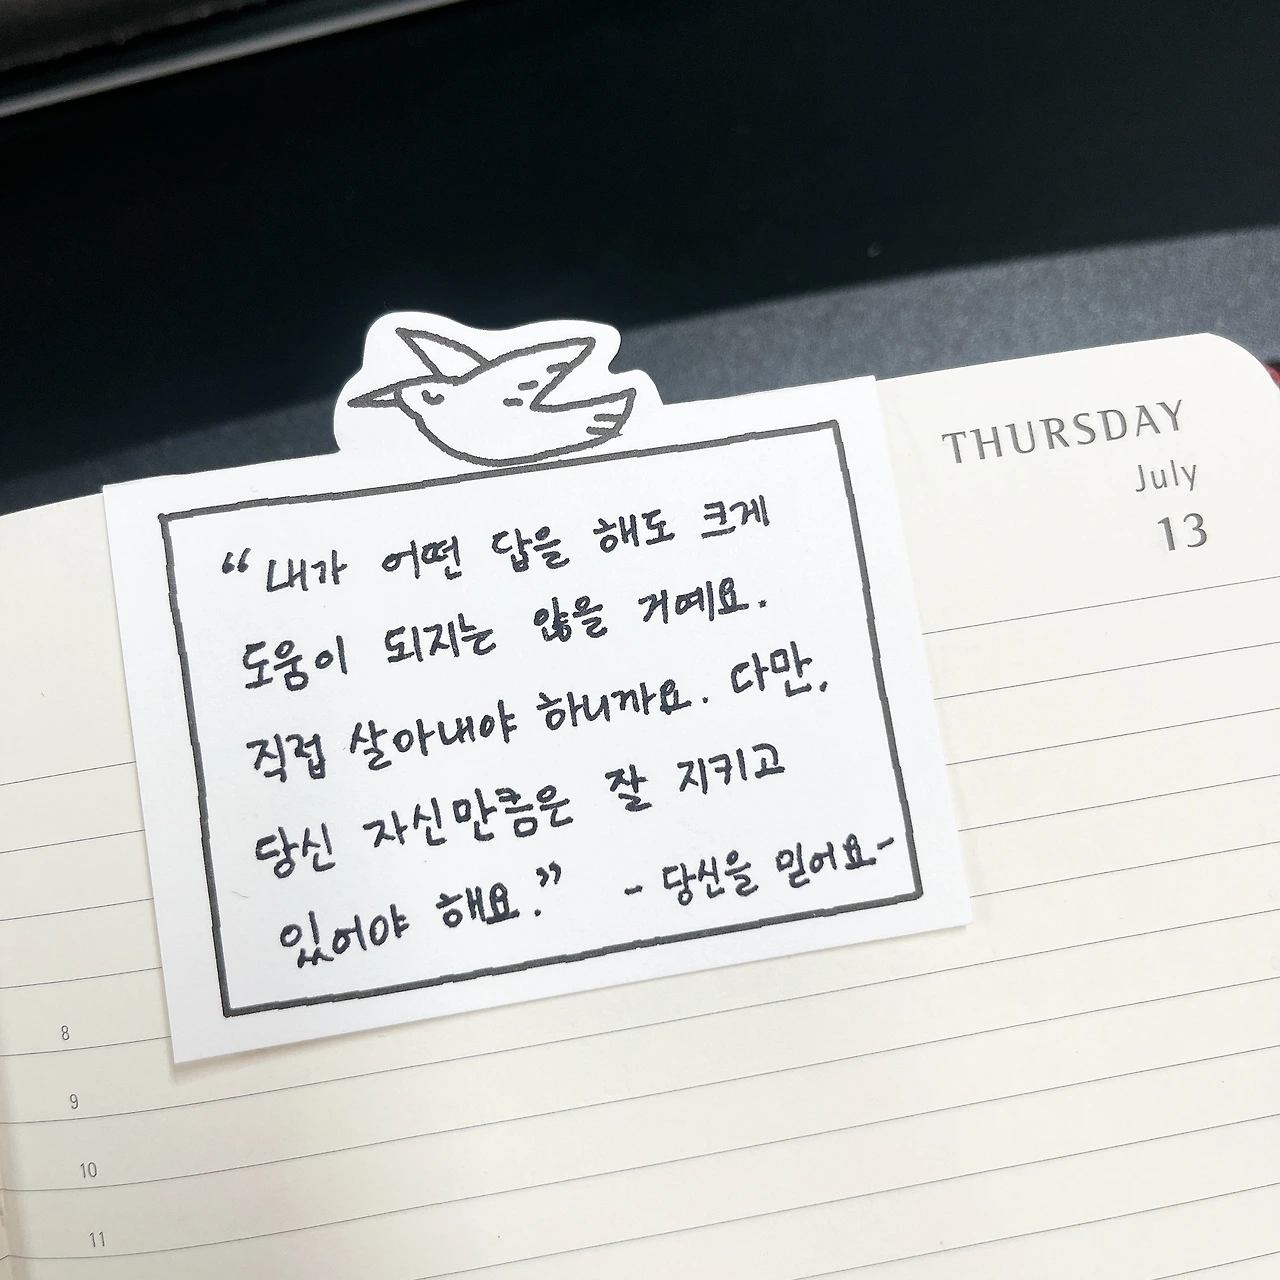 THURSDAY
July
13
“내가 어떤 답을 해도 크게
도움이 되지는 않을 거예요.
직접 살아내야 하니까요. 다만,
당신 자신만큼은 잘 지키고
있어야 해요.” - 당신을 믿어요-
8
9
10
11